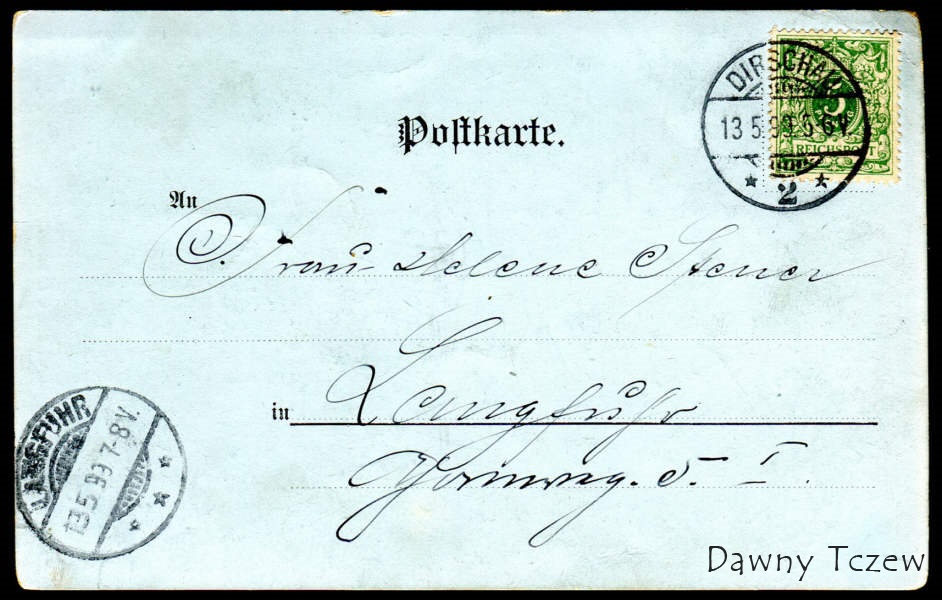 Postkarte.
DIRSCHAU
13 5 99 5-6V.
2
5
REICHSPOST
An
Frau Helene Steuer
in Langfuhr
5. I.
LANGFUHR
13 5 99 7-8V.
Dawny Tczew